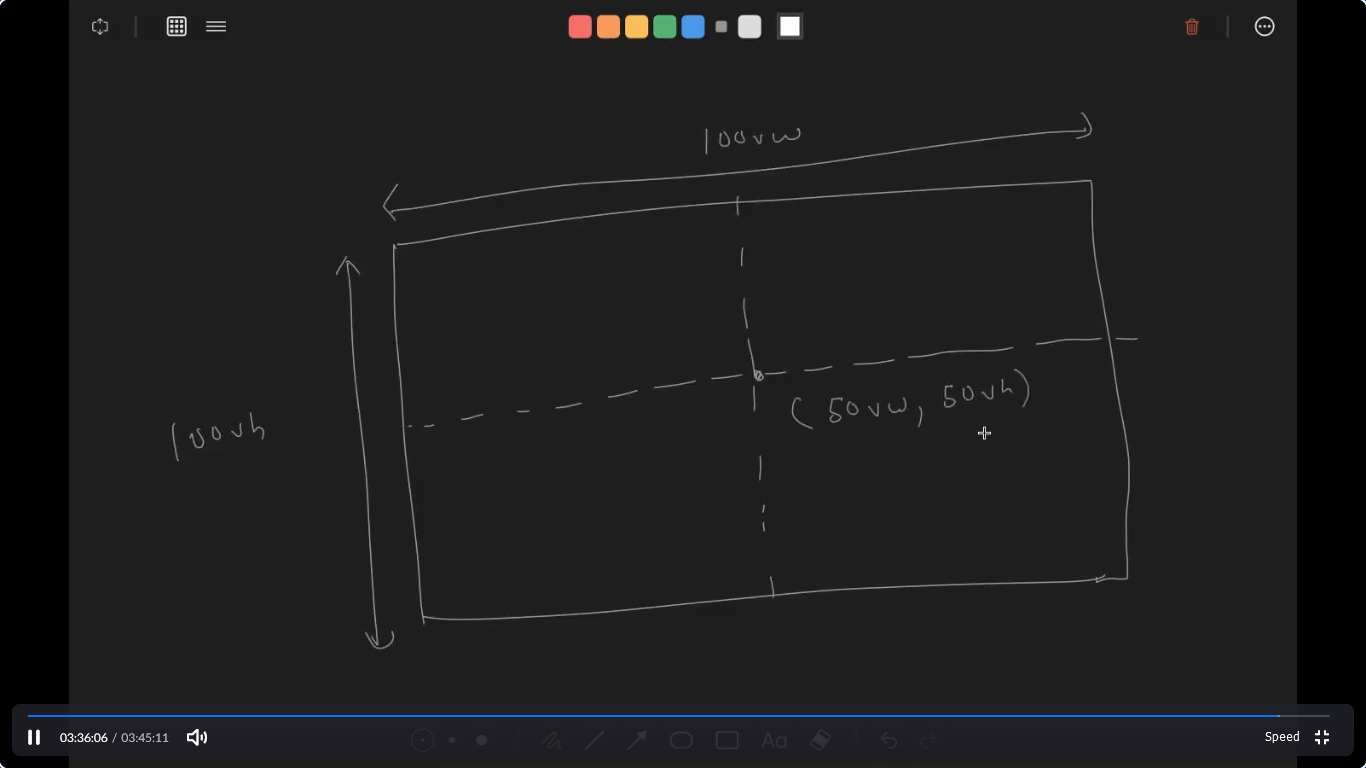 100vw
100vh
(50vw, 50vh)
Aa
03:36:06 / 03:45:11
Speed